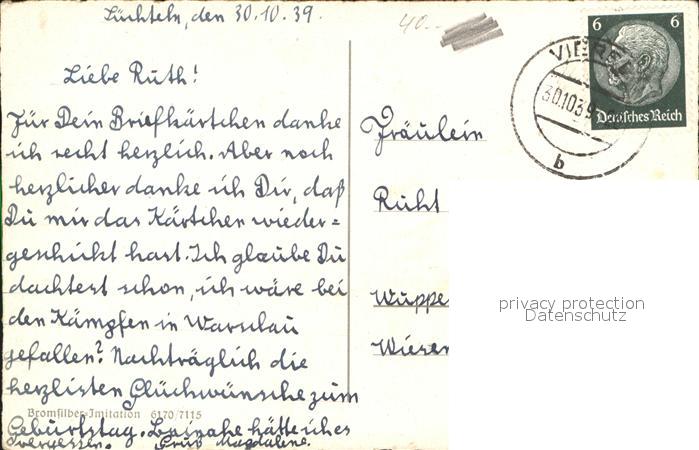 Süchteln, den 30.10.39.
40.-
6 6
Deutsches Reich
30.10.39
b
Liebe Ruth!
Für Dein Briefkärtchen danke
ich recht herzlich. Aber noch
herzlicher danke ich Dir, daß
Du mir das Kärtchen wieder=
geschickt hast. Ich glaube Du
dachtest schon, ich wäre bei
den Kämpfen in Warschau
gefallen? Nachträglich die
herzlisten Glückwünsche zum
Geburtstag. Beinahe hätte ich es
vergessen. Gruß Magdalene.
Fräulein
Ruht
Wuppe
Wiesen
privacy protection
Datenschutz
Bromsilber-Imitation 6170/7115